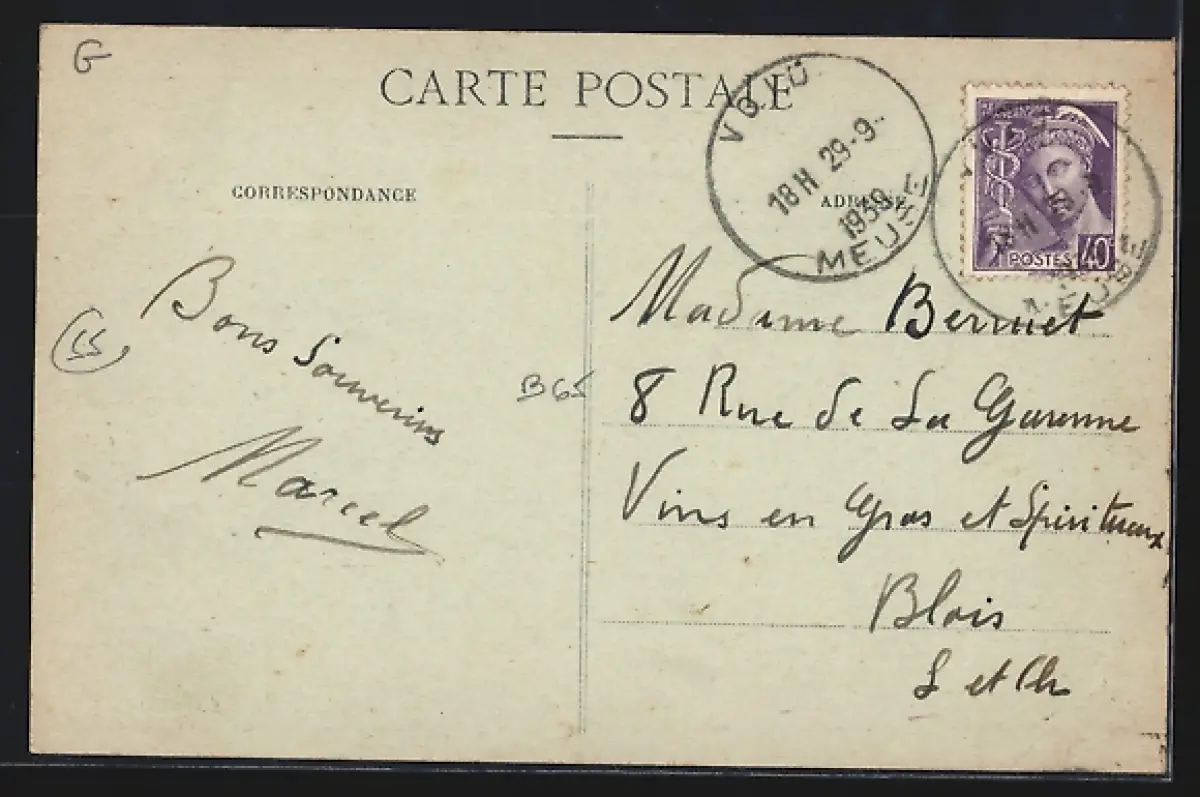 G
CARTE POSTALE
CORRESPONDANCE
ADRESSE
18H 29-9-
1939
MEUSE
POSTES 40
Bons Souvenirs
Marcel
55
B65
Madame
8 Rue de La Garenne
Vins en Gros et Spiritueux
Blois
L et Ch